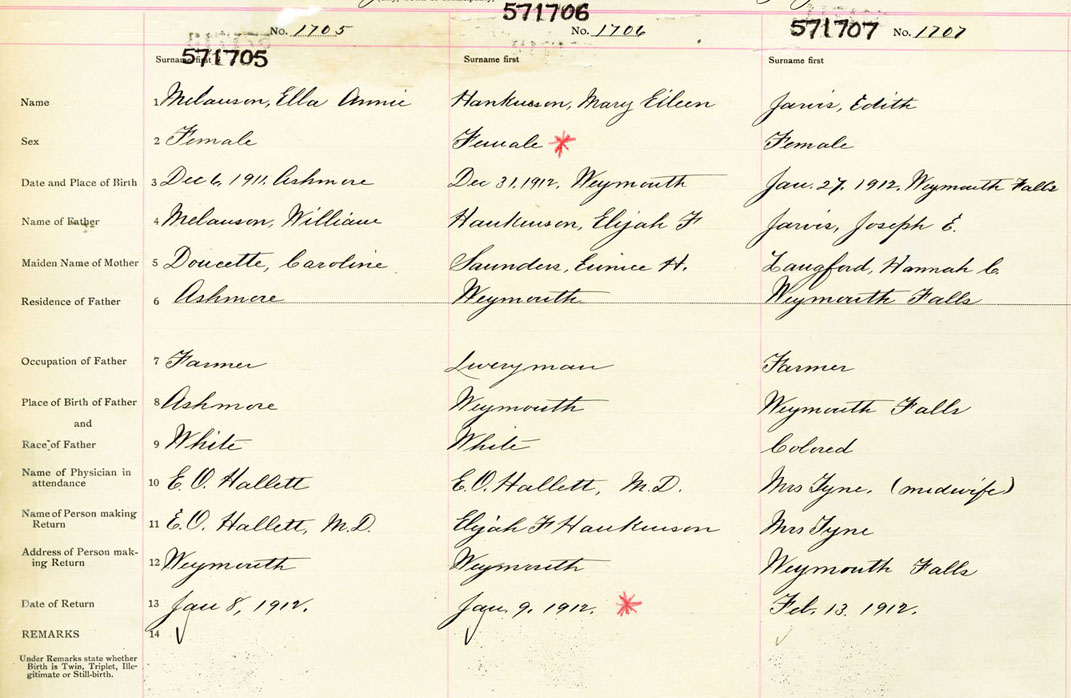 571706
No. 1705 No. 1706 571707 No. 1707
571705
Surname first Surname first Surname first
Name 1 Melanson, Ella Annie Hankinson, Mary Eileen Jarvis, Edith
Sex 2 Female Female * Female
Date and Place of Birth 3 Dec 6, 1911. Ashmore Dec 31. 1912. Weymouth Jan. 27, 1912. Weymouth Falls
Name of Father 4 Melanson, William Hankinson, Elijah F Jarvis, Joseph E.
Maiden Name of Mother 5 Doucette, Caroline Saunders, Eunice H. Langford, Hannah C.
Residence of Father 6 Ashmore Weymouth Weymouth Falls
Occupation of Father 7 Farmer Liveryman Farmer
Place of Birth of Father 8 Ashmore Weymouth Weymouth Falls
and
Race of Father 9 White White Colored
Name of Physician in
attendance 10 E. O. Hallett E. O. Hallett, M.D. Mrs Tyne. (midwife)
Name of Person making
Return 11 E. O. Hallett, M.D. Elijah F Hankinson Mrs Tyne
Address of Person mak-
ing Return 12 Weymouth Weymouth Weymouth Falls
Date of Return 13 Jan 8, 1912. Jan. 9, 1912. * Feb. 13. 1912.
REMARKS 14
Under Remarks state whether
Birth is Twin, Triplet, Ille-
gitimate or Still-birth.